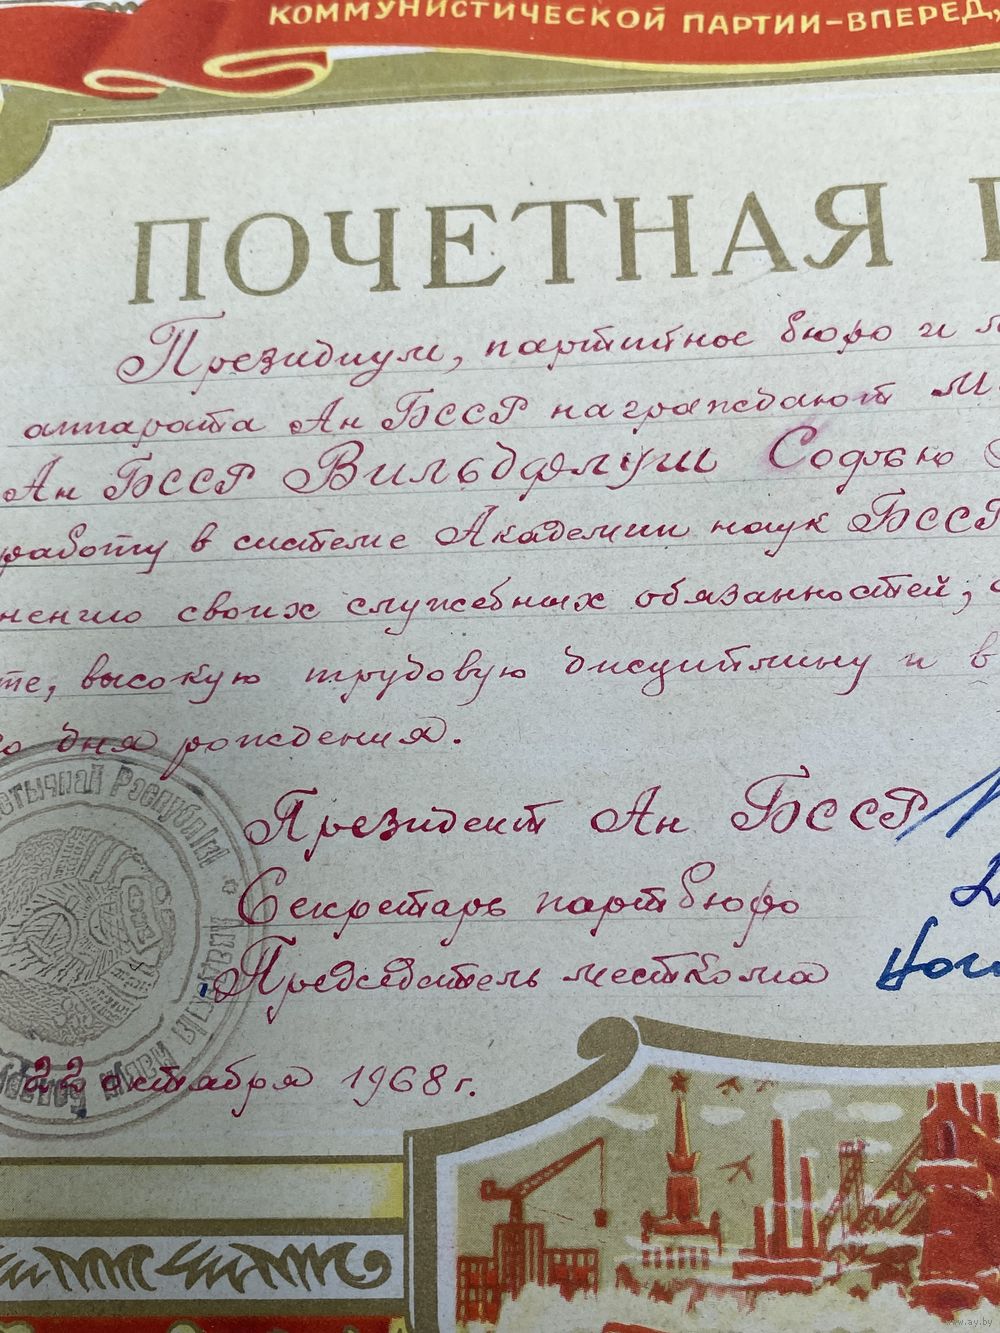 КОММУНИСТИЧЕСКОЙ ПАРТИИ–ВПЕРЕД,
ПОЧЕТНАЯ
Президиум, партийное бюро и
аппарата Ан БССР награждают
Ан БССР Вильдфлуш Софью
работу в системе Академии наук БССР
нению своих служебных обязанностей,
те, высокую трудовую дисциплину и в
го дня рождения.
Президент Ан БССР
Секретарь партбюро
Председатель месткома
22 октября 1968 г.
Рэспублікі
www.ay.by